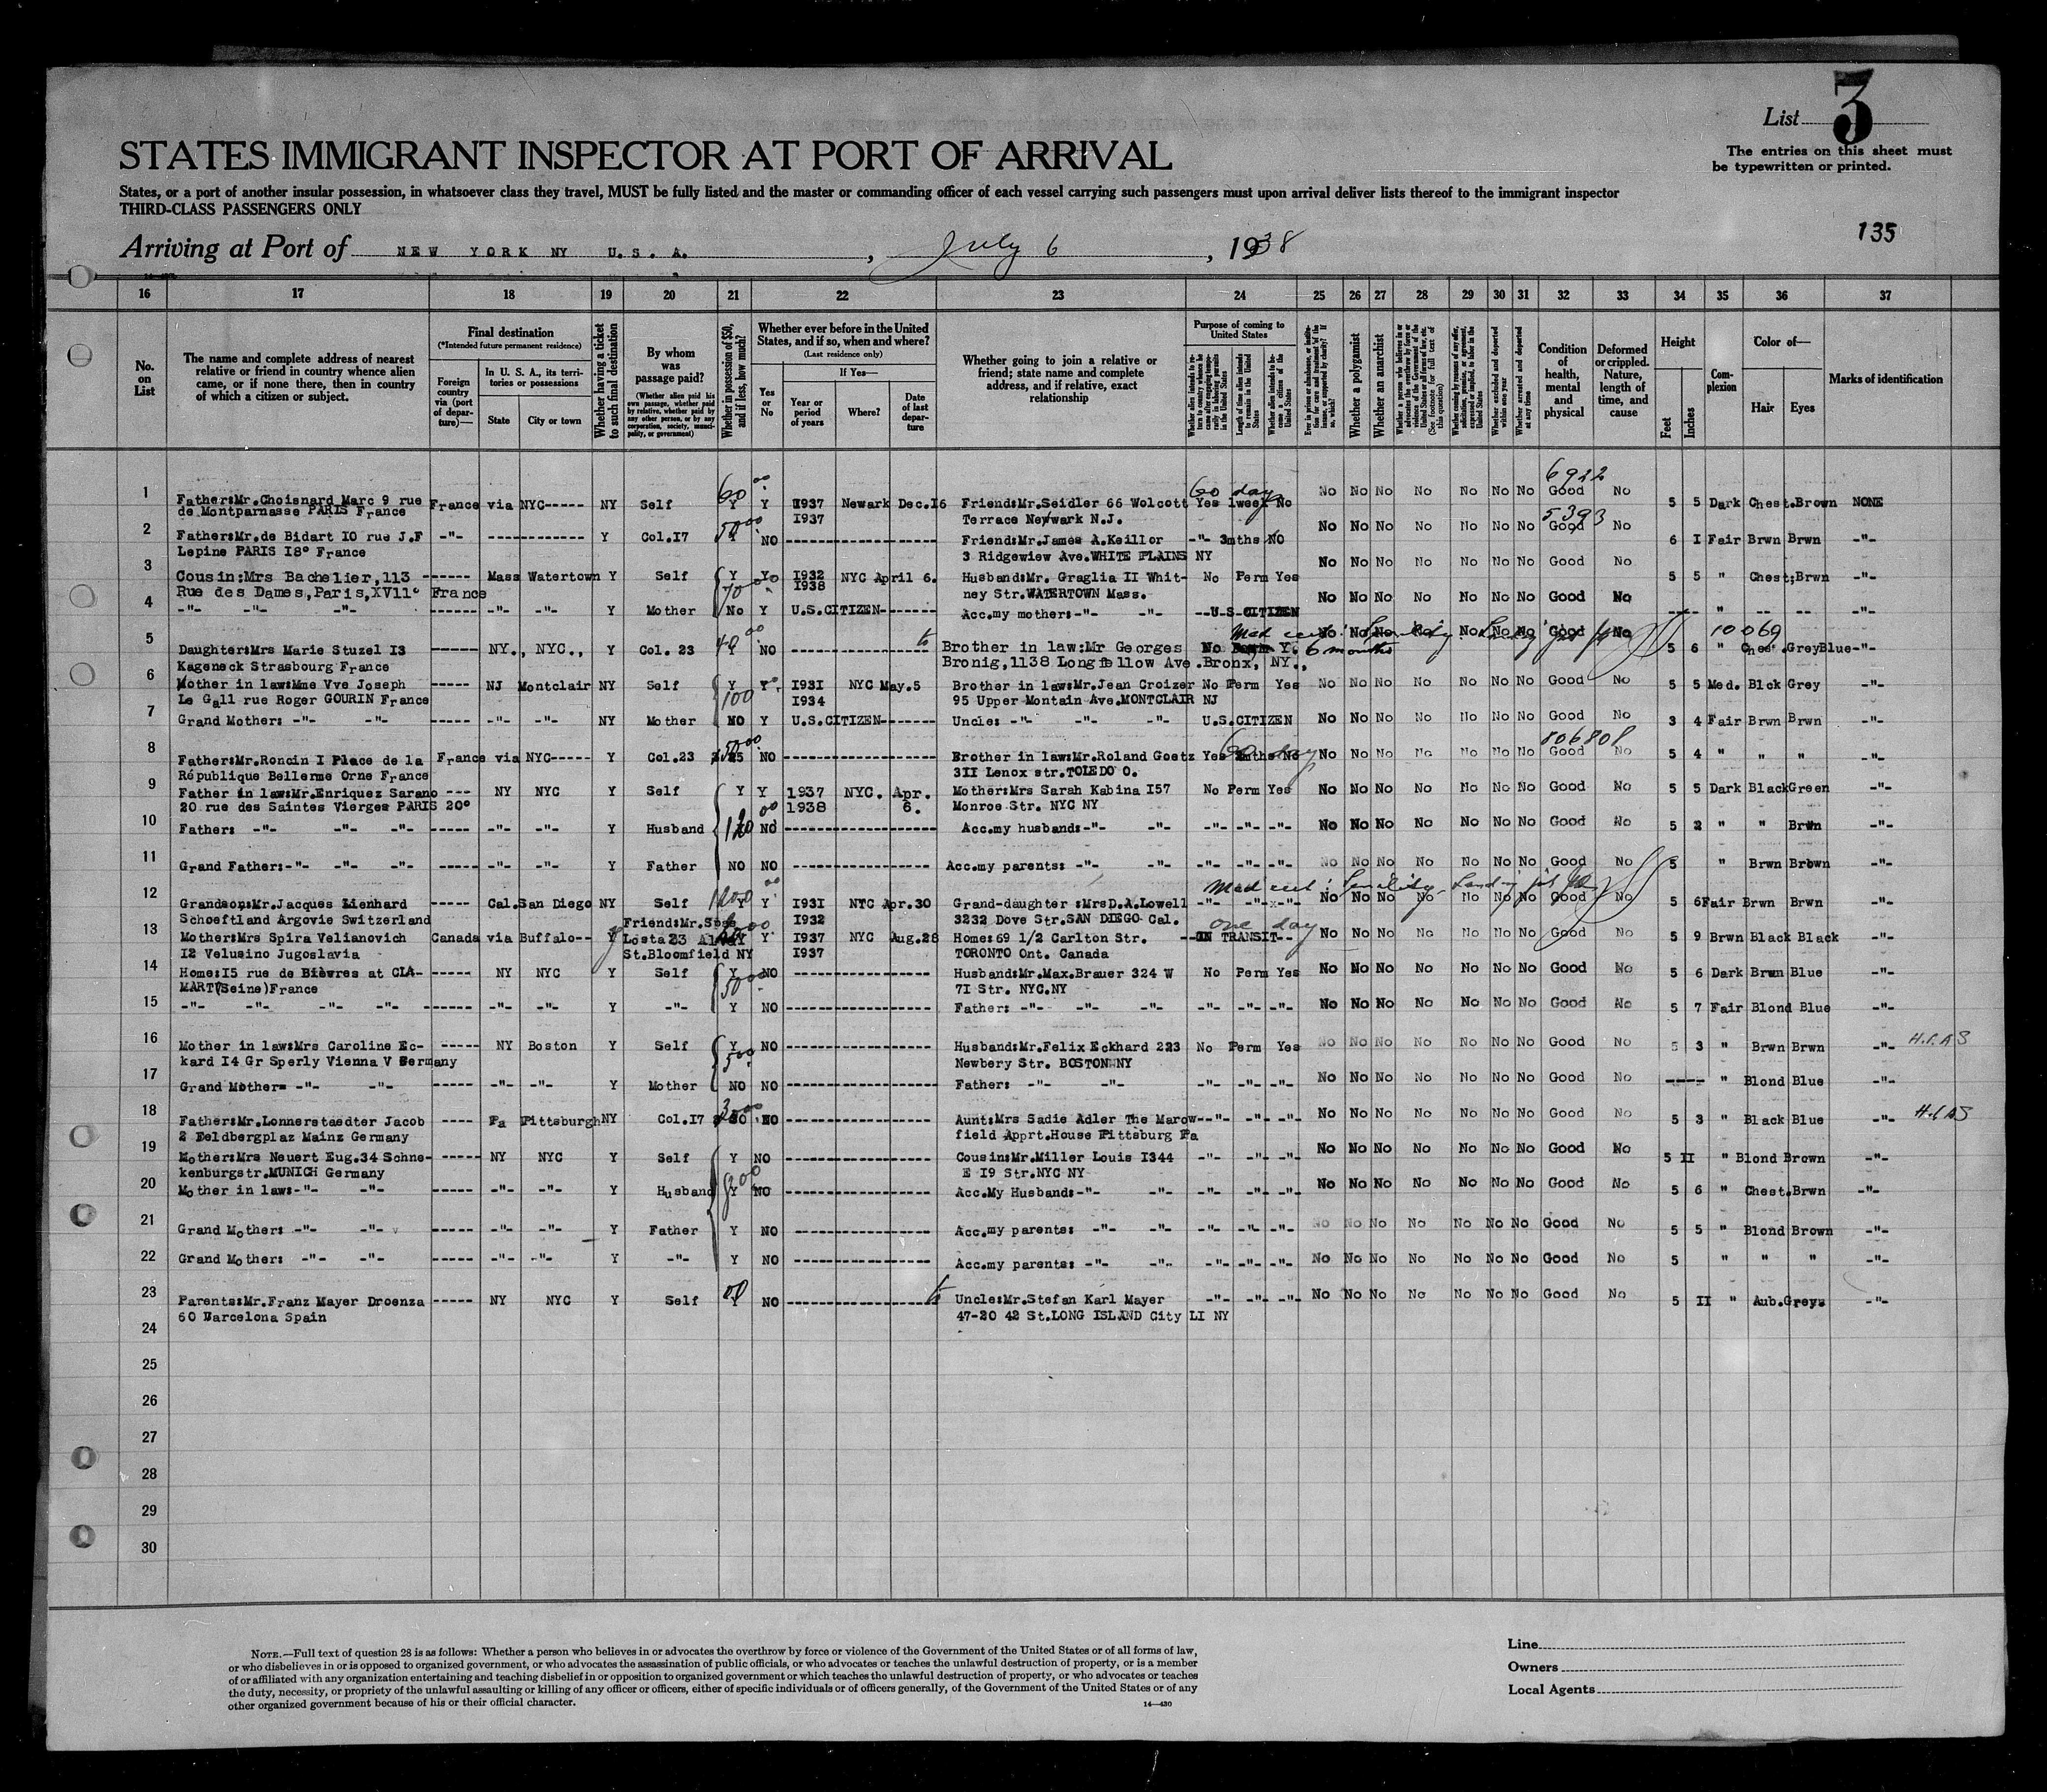 List 3
The entries on this sheet must
be typewritten or printed.
STATES IMMIGRANT INSPECTOR AT PORT OF ARRIVAL
States, or a port of another insular possession, in whatsoever class they travel, MUST be fully listed and the master or commanding officer of each vessel carrying such passengers must upon arrival deliver lists thereof to the immigrant inspector
THIRD-CLASS PASSENGERS ONLY
135
Arriving at Port of NEW YORK NY U.S.A. , July 6 , 1938
16 17 18 19 20 21 22 23 24 25 26 27 28 29 30 31 32 33 34 35 36 37
No. on List
The name and complete address of nearest relative or friend in country whence alien came, or if none there, then in country of which a citizen or subject.
Final destination
(*Intended future permanent residence)
Foreign country via (port of departure)—
In U. S. A., its territories or possessions
State City or town
Whether having a ticket to such final destination
By whom was passage paid?
(Whether alien paid his own passage, whether paid by relative, whether paid by any other person, or by any corporation, society, municipality, or government)
Whether in possession of $50, and if less, how much?
Whether ever before in the United States, and if so, when and where?
(Last residence only)
Yes or No
If Yes—
Year or period of years Where? Date of last departure
Whether going to join a relative or friend; state name and complete address, and if relative, exact relationship
Purpose of coming to United States
Length of time alien intends to remain in the United States
Whether alien intends to become a citizen of the United States
Whether a polygamist
Whether an anarchist
Whether excluded and deported within one year
Whether arrested and deported at any time
Condition of health, mental and physical
Deformed or crippled. Nature, length of time, and cause
Height
Feet Inches
Complexion
Color of—
Hair Eyes
Marks of identification
6922
60 days
1 Father:Mr.Choisnard Marc 9 rue France via NYC----- NY Self Y Y I937 Newark Dec.I6 Friend:Mr.Seidler 66 Wolcott Yes 1week No No No No No No No No Good No 5 5 Dark Chest.Brown NONE
de Montparnasse PARIS France I937 Terrace Newark N.J.
5393
2 Father:Mr.de Bidart I0 rue J.F -"- ------------ Y Col.I7 NO ------------------ Friend:Mr.James A.Keillor -"- 3mths NO No No No No No No No Good No 6 I Fair Brwn Brwn -"-
Lepine PARIS I8° France 3 Ridgewiew Ave.WHITE PLAINS NY
3 Cousin:Mrs Bachelier,113 ------ Mass Watertown Y Self Y I932 NYC April 6. Husband:Mr. Graglia II Whit- No Perm Yes No No No No No No No Good No 5 5 " Chest;Brwn -"-
Rue des Dames,Paris,XVII° France I938 ney Str.WATERTOWN Mass.
4 -"- -"- -"- ----- -"- -"- Y Mother No Y U.S.CITIZEN------- Acc.my mother:-"- -"- --U-S-CITIZEN No No No No No No No Good No ---- " -- -- -"-
10069
5 Daughter:Mrs Marie Stuzel I3 ----- NY., NYC., Y Col. 23 Y NO ------------------ Brother in law:Mr Georges No Y. 6 months No No No No No No Good No 5 6 " Ches.GreyBlue-"-
Kageneck Strasbourg France Bronig,1138 Longfellow Ave.Bronx, NY.,
6 Mother in law:Mme Vve Joseph ----- NJ Montclair NY Self Y Y I93I NYC May.5 Brother in law:Mr.Jean Croizer No Perm Yes No No No No No No No Good No 5 5 Med. Blck Grey -"-
Le Gall rue Roger GOURIN France 100 I934 95 Upper Montain Ave.MONTCLAIR NJ
7 Grand Mother: -"- -"- ----- -"- -"- NY Mother NO Y U.S.CITIZEN------- Uncle: -"- -"- -"- U.S.CITIZEN No No No No No No No Good No 3 4 Fair Brwn Brwn -"-
806808
8 Father:Mr.Roncin I Place de la France via NYC----- Y Col.23 NO ------------------ Brother in law:Mr.Roland Goetz Yes 2mths No No No No No No No No Good No 5 4 " " " -"-
République Bellerme Orne France 3II Lenox str.TOLEDO O.
9 Father in law:Mr.Enriquez Sarano --- NY NYC Y Self Y Y 1937 NYC. Apr. Mother:Mrs Sarah Kabina I57 No Perm Yes No No No No No No No Good No 5 5 Dark BlackGreen -"-
20 rue des Saintes Vierges PARIS 20° 1938 6. Monroe Str. NYC NY
10 Father: -"- -"- -"- ----- -"- -"- Y Husband NO ------------------ Acc.my husband:-"- -"- -"- -"- -"- No No No No No No No Good No 5 2 " " Brwn -"-
11 Grand Father:-"- -"- -"- ----- -"- -"- Y Father NO NO ------------------ Acc.my parents: -"- -"- -"- -"- -"- No No No No No No No Good No 5 " Brwn Brown -"-
12 Grandson:Mr.Jacques Lienhard ----- Cal.San Diego NY Self Y Y I93I NYC Apr.30 Grand-daughter :MrsD.A.Lowell -"- -"- -"- No No No No No No No Good No 5 6Fair Brwn Brwn -"-
Schoeftland Argovie Switzerland I932 3232 Dove Str.SAN DIEGO Cal.
one day
13 Mother:Mrs Spira Velianovich Canada via Buffalo-- Y Y I937 NYC Aug.28 Home:69 1/2 Carlton Str. --IN TRANSIT-- No No No No No No No Good No 5 9 Brwn Black Black -"-
I2 Velusino Jugoslavia St.Bloomfield NY I937 TORONTO Ont. Canada
14 Home:I5 rue de Bièvres at CLA- ----- NY NYC Y Self Y NO ------------------ Husband:Mr.Max.Brauer 324 W No Perm Yes No No No No No No No Good No 5 6 Dark Brwn Blue -"-
MART(Seine)France 7I Str. NYC.NY
15 -"- -"- -"- -"- ------ -"- -"- Y -"- Y NO ------------------ Father: -"- -"- -"- -"- -"- No No No No No No No Good No 5 7 Fair Blond Blue -"-
16 Mother in law:Mrs Caroline Ec- ----- NY Boston Y Self Y NO ------------------ Husband:Mr.Felix Eckhard 223 No Perm Yes No No No No No No No Good No 5 3 " Brwn Brwn -"- H.I.A.S
kard I4 Gr Sperly Vienna V Germany Newbery Str. BOSTON NY
17 Grand Mother= -"- -"- ----- -"- -"- Y Mother NO NO ------------------ Father: -"- -"- -"- -"- -"- No No No No No No No Good No ---- " Blond Blue -"-
18 Father:Mr.Lonnerstaedter Jacob ---- Pa Pittsburgh NY Col.I7 NO ------------------ Aunt:Mrs Sadie Adler The Marow--"- -"- -"- No No No No No No No Good No 5 3 " Black Blue -"- H.I.A.S
2 Feldbergplaz Mainz Germany field Apprt.House Pittsburg Pa
19 Mother:Mrs Neuert Eug.34 Schne- ----- NY NYC Y Self Y NO ------------------ Cousin:Mr.Miller Louis I344 -"- -"- -"- No No No No No No No Good No 5 II " Blond Brown -"-
kenburgstr.MUNICH Germany E I9 Str.NYC NY
20 Mother in law:-"- -"- ----- -"- -"- Y Husband Y NO ------------------ Acc.My Husband:-"- -"- -"- -"- -"- No No No No No No No Good No 5 6 " Chest.Brwn -"-
21 Grand Mother: -"- -"- ----- -"- -"- Y Father Y NO ------------------ Acc.my parents: -"- -"- -"- -"- -"- No No No No No No No Good No 5 5 " Blond Brown -"-
22 Grand Mother: -"- -"- ----- -"- -"- Y -"- Y NO ------------------ Acc.my parents: -"- -"- -"- -"- -"- No No No No No No No Good No 5 " " " -"-
23 Parents:Mr.Franz Mayer Droenza ----- NY NYC Y Self Y NO ------------------ Uncle:Mr.Stefan Karl Mayer -"- -"- -"- No No No No No No No Good No 5 II " Aub.Greys -"-
60 Barcelona Spain 47-20 42 St.LONG ISLAND City LI NY
24
25
26
27
28
29
30
NOTE.—Full text of question 28 is as follows: Whether a person who believes in or advocates the overthrow by force or violence of the Government of the United States or of all forms of law,
or who disbelieves in or is opposed to organized government, or who advocates the assassination of public officials, or who advocates or teaches the unlawful destruction of property, or is a member
of or affiliated with any organization entertaining and teaching disbelief in or opposition to organized government or which teaches the unlawful destruction of property, or who advocates or teaches
the duty, necessity, or propriety of the unlawful assaulting or killing of any officer or officers, either of specific individuals or of officers generally, of the Government of the United States or of any
other organized government because of his or their official character.
14—430
Line
Owners
Local Agents